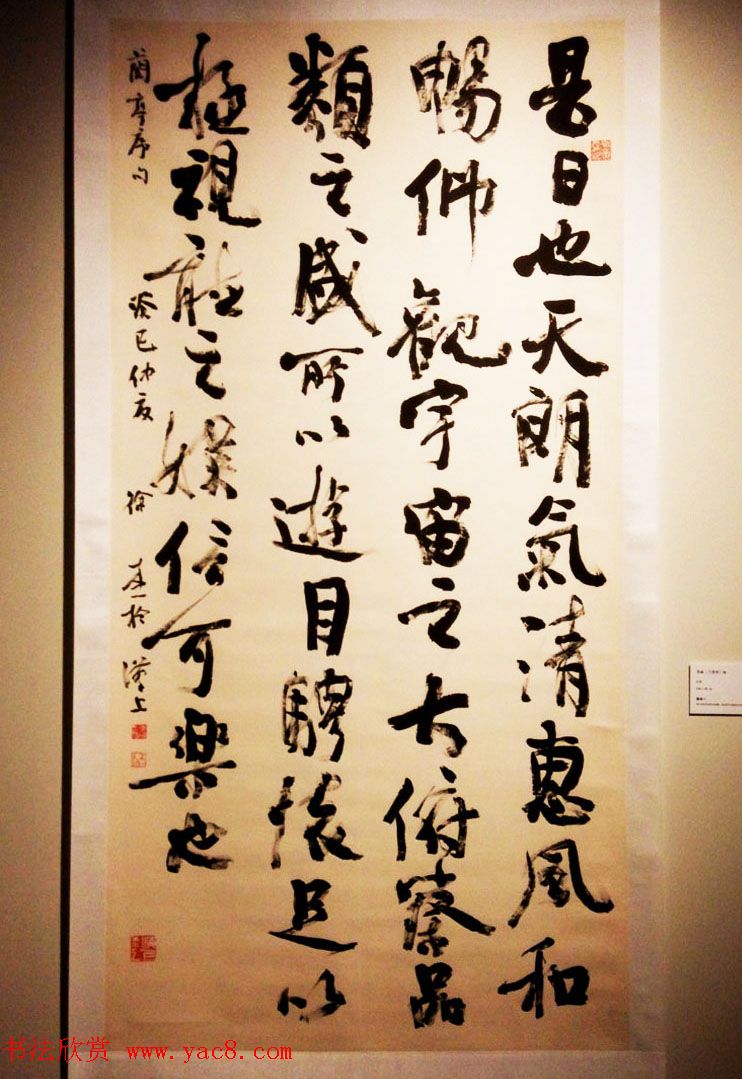 是日也天朗氣清惠風和
暢仰觀宇宙之大俯察品
類之盛所以遊目騁懷足以
極視聽之娛信可樂也
蘭亭序句 癸巳仲夏 徐本一於漢上
书法欣赏 www.yac8.com